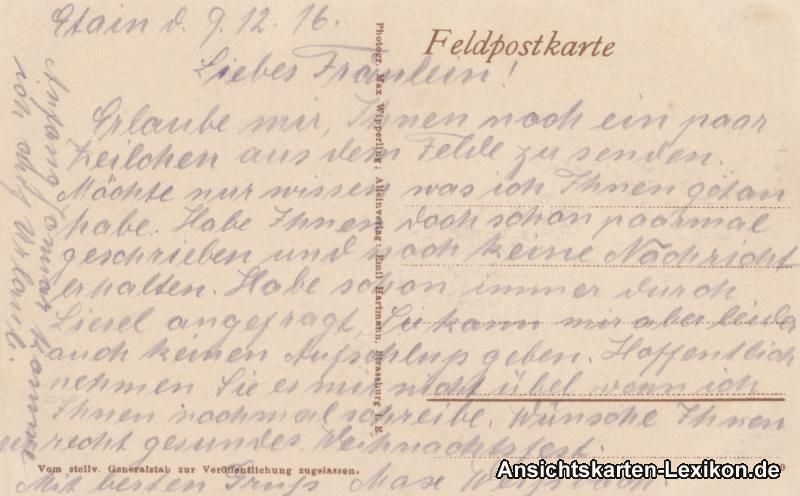 Etain d. 9.12.16.
Feldpostkarte
Liebes Fräulein!
Erlaube mir, Ihnen noch ein paar
Zeilchen aus dem Felde zu senden.
Möchte nur wissen was ich Ihnen getan
habe. Habe Ihnen doch schon paarmal
geschrieben und noch keine Nachricht
erhalten. Habe schon immer durch
Liesel angefragt, Sie kann mir aber leider
auch keinen Aufschluß geben. Hoffentlich
nehmen Sie es mir nicht übel wenn ich
Ihnen nochmal schreibe. Wünsche Ihnen
recht gesundes Weihnachtsfest.
Mit besten Gruß Max
Anfang Januar komme
ich auf Urlaub.
Photogr. Max Wipperling; Alleinverlag Emil Hartmann, Strassburg i. E.
Vom stellv. Generalstab zur Veröffentlichung zugelassen.
Ansichtskarten-Lexikon.de